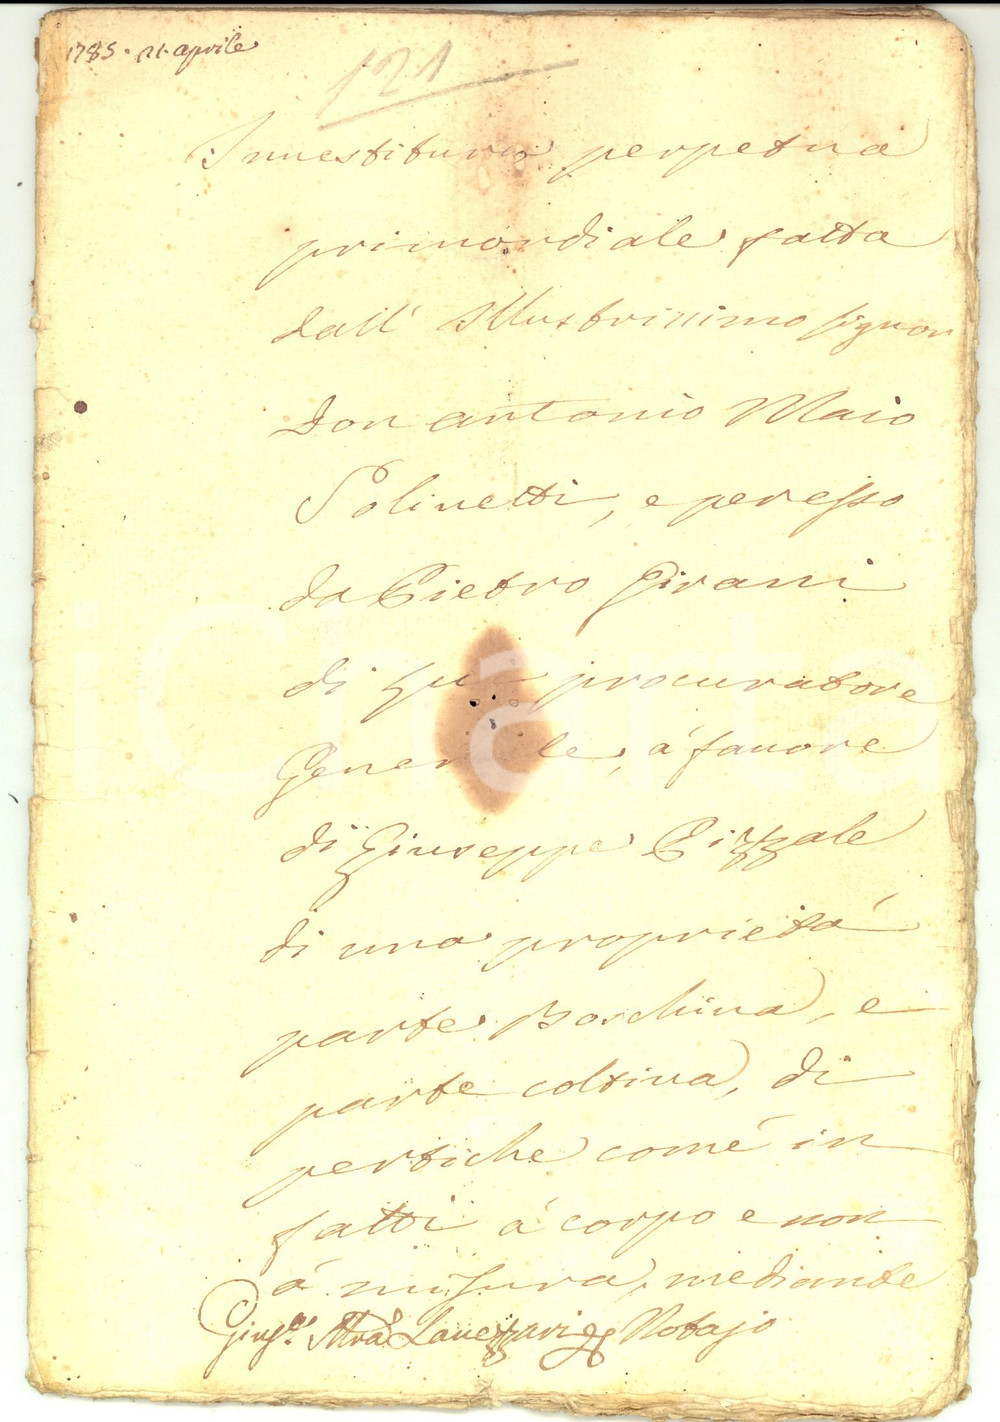 1785. 21. aprile
121
Inuestitura perpetua
primordiale fatta
dall' Illustrissimo signor
Don Antonio Maio
Polinetti, e per esso
da Pietro Girani
di procuratore
Generale, á fauore
di Giuseppe Pizzale
di una proprietá
parte Boschiua, e
parte coltiua, di
pertiche comé in
fatti á corpo e non
á misura, mediante
Notajo
iCharta